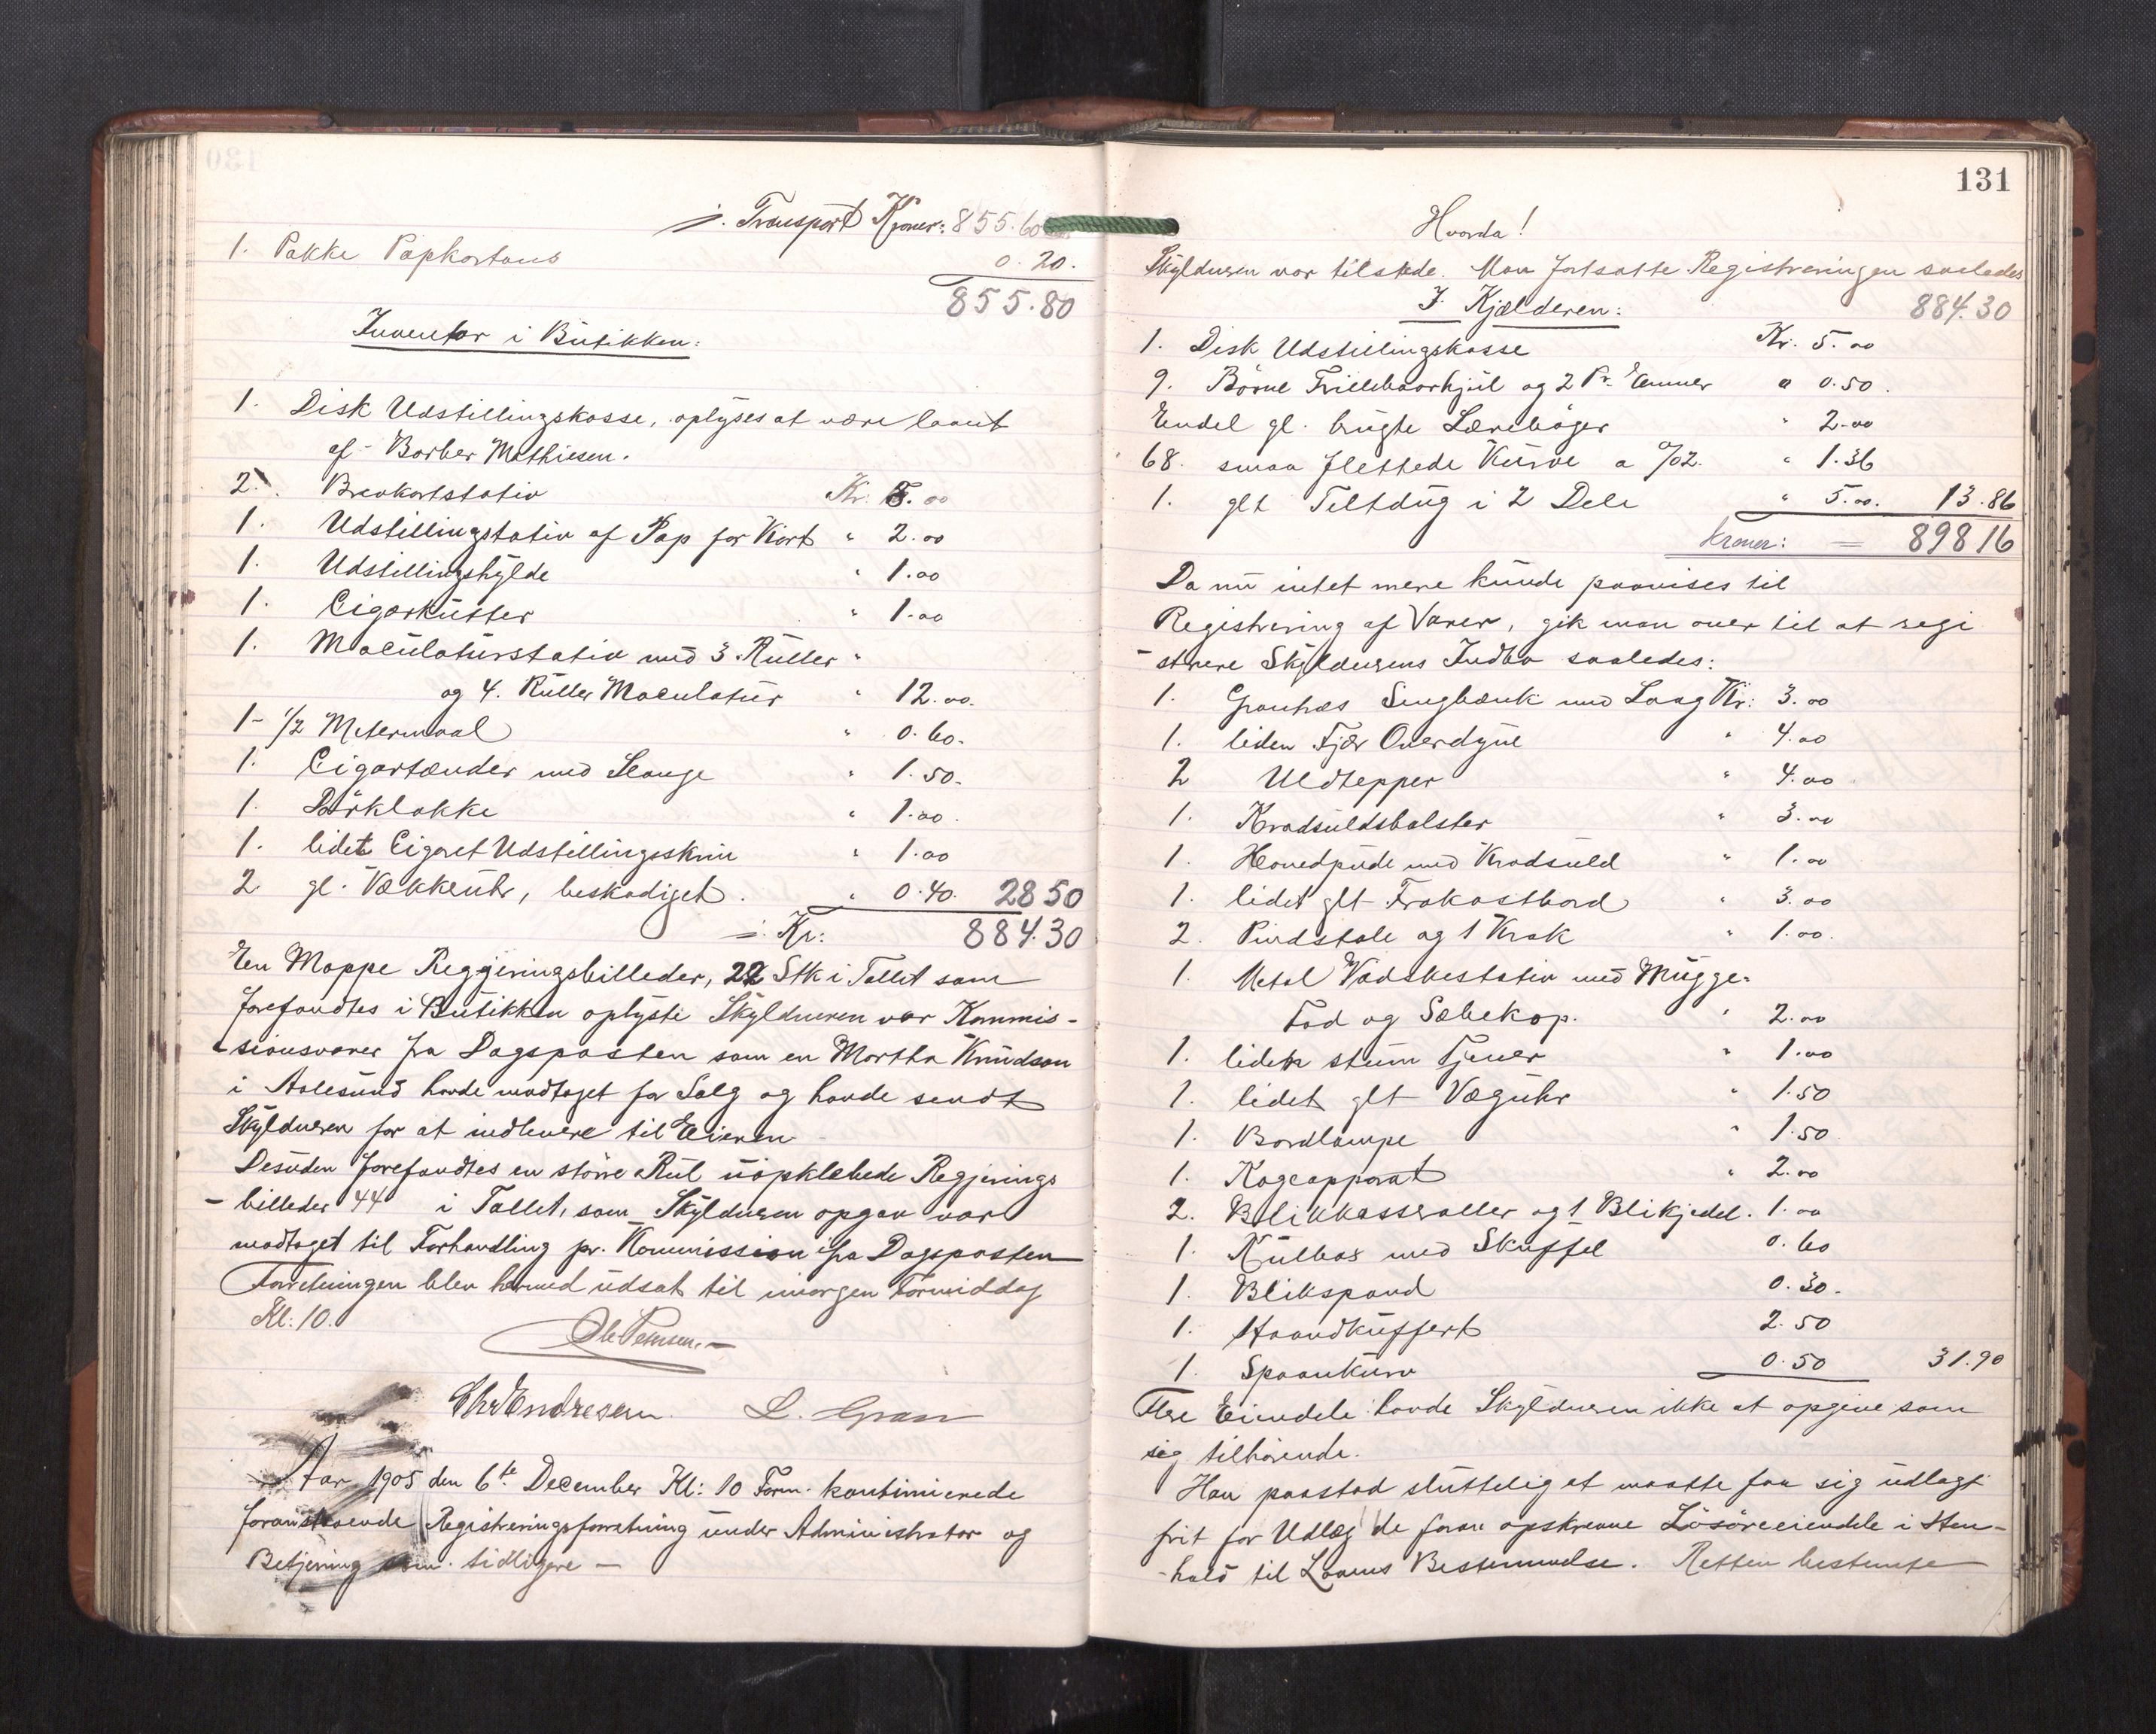 ÷ Transport Kroner: 855.60
1. Pakke Papkartons 0.20.
855.80
Inventar i Butikken:
1. Disk Udstillingskasse, oplyses at være laant
af Barber Mathiesen.
2. Brevkortstativ Kr. 8.00
1. Udstillingstativ af Pap for Kort " 2.00
1. Udstillingshylde " 1.00
1. Cigarkutter " 1.00
1. Maculaturstativ med 3. Ruller "
og 4. Ruller Maculatur " 12.00.
1- 1/2 Metermaal " 0.60.
1. Cigartænder med Slange " 1.50.
1. Dörklokke " 1.00.
1. lidet Cigaret Udstillingsskrin " 1.00
2 gl. Vækkeuhr, beskadiget. " 0.40. 28 50
÷ Kr: 884.30
En Mappe Regjeringsbilleder, 22 Stk i Tallet som
forefandtes i Butikken oplyste Skyldneren var Kommis-
-sionsvarer fra Dagsposten som en Martha Knudson
i Aalesund havde modtaget for Salg og havde sendt
Skyldneren for at indlevere til Eieren
Desuden forefandtes en större Rul uopklæbede Regjerings
-billeder 44 i Tallet, som Skyldneren opgav var
modtaget til Forhandling pr. Kommission fra Dagsposten
Forretningen blev hermed udsat til imorgen Formiddag
Kl: 10.
Ole Pettersen.-
Chr Endresen. L. Gran
Aar 1905 den 6te December Kl: 10 Form. kontinuerede
foranstaaende Registreringsforretning under Administrator og
Betjening som tidligere -
131
Hvorda!
Skyldneren var tilstede. Man fortsatte Registreringen saaledes
I Kjælderen: 884.30
1. Disk Udstillingskasse Kr. 5.00
9. Börne Trillebaarhjul og 2 Pr. Emner " 0.50.
Endel gl. brugte Lærebøger " 2.00
68. smaa flettede Kurve a 0/02. " 1.36
1. glt Teltdug i 2 Dele " 5.00. 13.86
Kroner: = 898 16
Da nu intet mere kunde paavises til
Registrering af Varer, gik man over til at regi
-strere Skyldnerens Indbo saaledes:
1. Grantræs Sengbænk med Laag Kr: 3.00
1. liden Fjær Overdyne " 4.00
2 Uldtepper " 4.00
1. Kradsuldsbolster " 3.00
1. Hovedpude med Kradsuld " 1.00
1. lidet glt Frokostbord " 3.00
2. Pindstole og 1 Krak " 1.00.
1. Metal Vadskestativ med Mugge-
Fad og Sæbekop. " 2.00
1. liden stum Tjener " 1.00
1. lidet glt Væguhr " 1.50
1. Bordlampe " 1.50
1. Kogeapparat " 2.00
2. Blikkasseroller og 1 Blikjedel. 1.00
1. Kulbox med Skuffel 0.60
1. Blikspand 0.30.
1. Haandkuffert 2.50
1. Spaankurv 0.50 31.90
Flere Eiendele havde Skyldneren ikke at opgive som
sig tilhørende.
Han paastod sluttelig at maatte faa sig udlagt
frit for Udlæg de foran opskrevne Lösöreeiendele i Hen-
-hold til Lovens Bestemmelse. Retten bestemte